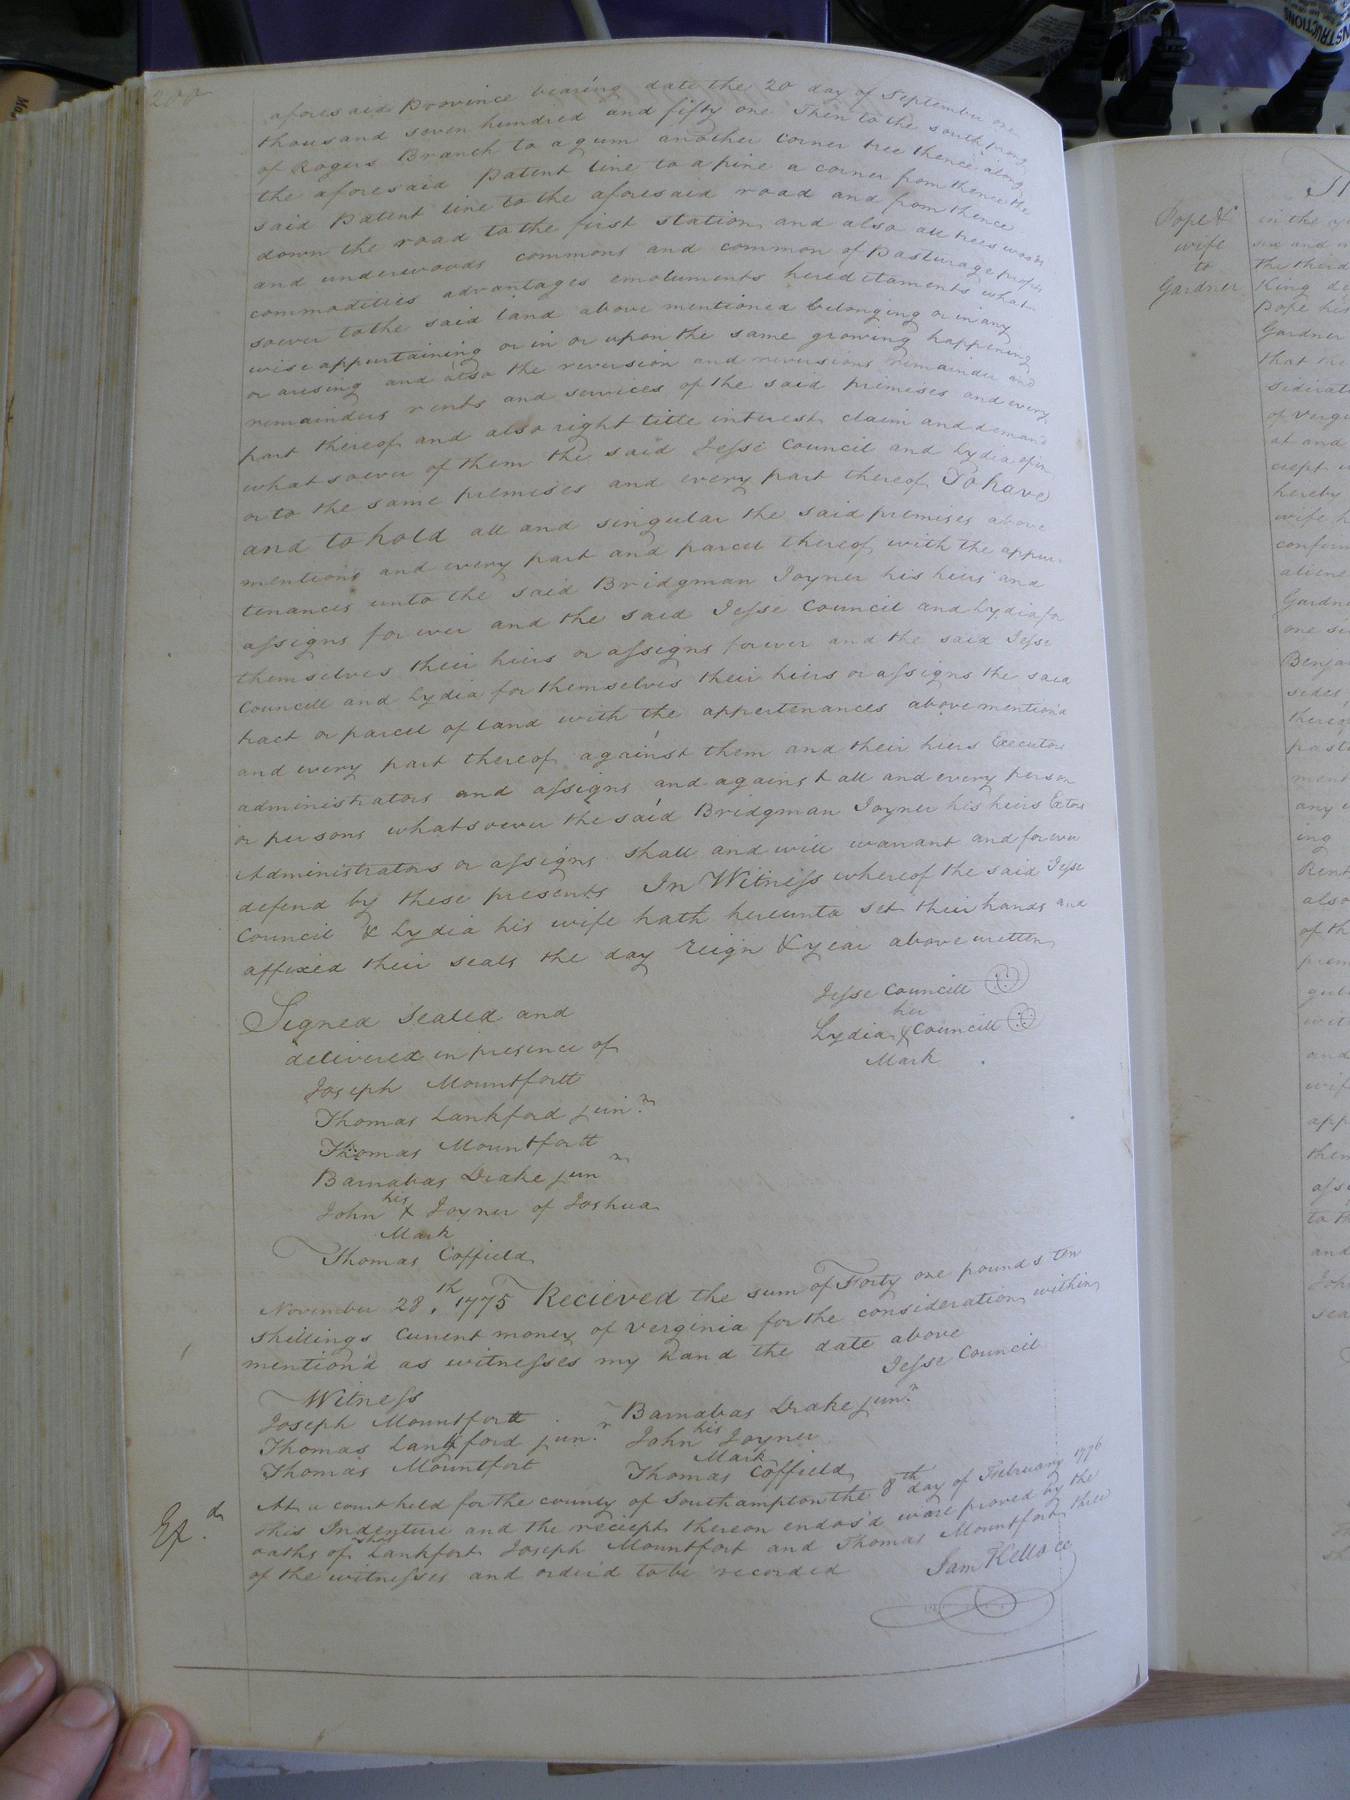 200
aforesaid Province bearing date the 20 day of September one
thousand seven hundred and fifty one Then to the south prong
of Rogers Branch to a gum another corner tree thence along
the aforesaid Patent line to a pine a corner from thence the
said Patent line to the aforesaid road and from thence
down the road to the first station and also all trees woods
and underwoods commons and common of Pasturage profits
commodities advantages emoluments hereditaments what-
soever to the said land above mentioned belonging or in any
wise appurtaining or in or upon the same growing happening
or arising and also the reversion and reversions remainder and
remainders rents and services of the said premises and every
part thereof and also right title interest claim and demand
whatsoever of them the said Jesse Council and Lydia of in
or to the same premises and every part thereof To have
and to hold all and singular the said premises above
mentions and every part and parcel thereof with the appur-
tenances unto the said Bridgman Joyner his heirs and
assigns forever and the said Jesse Council and Lydia for
themselves their heirs or assigns forever and the said Jesse
Councill and Lydia for themselves their heirs or assigns the said
tract or parcel of land with the appertenances above mention'd
and every part thereof against them and their heirs Executors
administrators and assigns and against all and every person
or persons whatsoever the said Bridgman Joyner his heirs Extors
Administrators or assigns shall and will warrant and forever
defend by these presents In Witness whereof the said Jesse
Council & Lydia his wife hath hereunto set their hands and
affixed their seals the day Reign & year above written
Jesse Councill
her
Lydia X Councill
Mark
Signed Sealed and
delivered in presence of
Joseph Mountfortt
Thomas Lankford junr
Thomas Mountfortt
Barnabas Drake junr
his
John X Joyner of Joshua
Mark
Thomas Coffield
November 28th 1775 Recieved the sum of Forty one pounds ten
shillings Current money of Verginia for the consideration within
mention'd as witnesses my hand the date above
Jesse Council
Witness
Joseph Mountfortt
Thomas Lankford junr
Thomas Mountfort
Barnabas Drake junr
his
John Joyner
Mark
Thomas Coffield
At a court held for the county of Southampton the 8th day of February 1776
this Indenture and the reciept thereon endos'd ware proved by the
oaths of Thos Lankfort Joseph Mountfort and Thomas Mountfort three
of the witnesses and order'd to be recorded
Sam Kello cc
Ex.d
Pope &
wife
to
Gardner
in the
six and
the third
King de
Pope his
Gardner
that the
siderat
of Verg
at and
ciept
hereby
wife h
confirm
aliene
Gardn
one si
Benja
sedes
thereof
past
ment
any
ing
Rent
also
of th
prem
gul
with
and
wif
app
them
assi
to th
and
Joh
sea